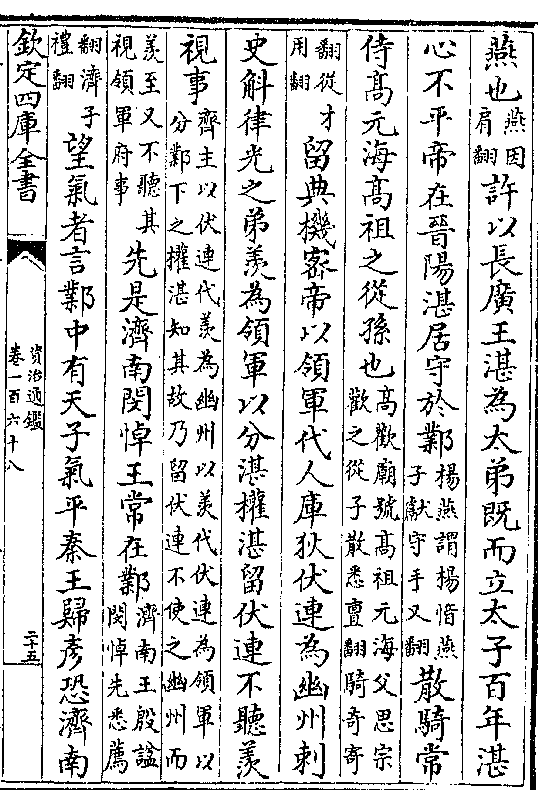 燕也
燕因
肩翻
許以長廣王湛為太弟既而立太子百年湛
心不平帝在晉陽湛居守於鄴
楊燕謂楊愔燕
子獻守手又翻
散騎常
侍高元海高祖之從孫也
高歡廟號高祖元海父思宗
歡之從子散悉亶翻騎奇寄
翻從才
用翻
留典機密帝以領軍代人庫狄伏連為幽州刺
史斛律光之弟羨為領軍以分湛權湛留伏連不聽羨
視事
齊主以伏連代羨為幽州以羨代伏連為領軍以
分鄴下之權湛知其故乃留伏連不使之幽州而
羨至又不聽其
視領軍府事
先是濟南閔悼王常在鄴
濟南王殷諡
閔悼先悉薦
翻濟子
禮翻
望氣者言鄴中有天子氣平秦王歸彥恐濟南
欽定四庫全書
資治通鑑
卷一百六十八
二十五